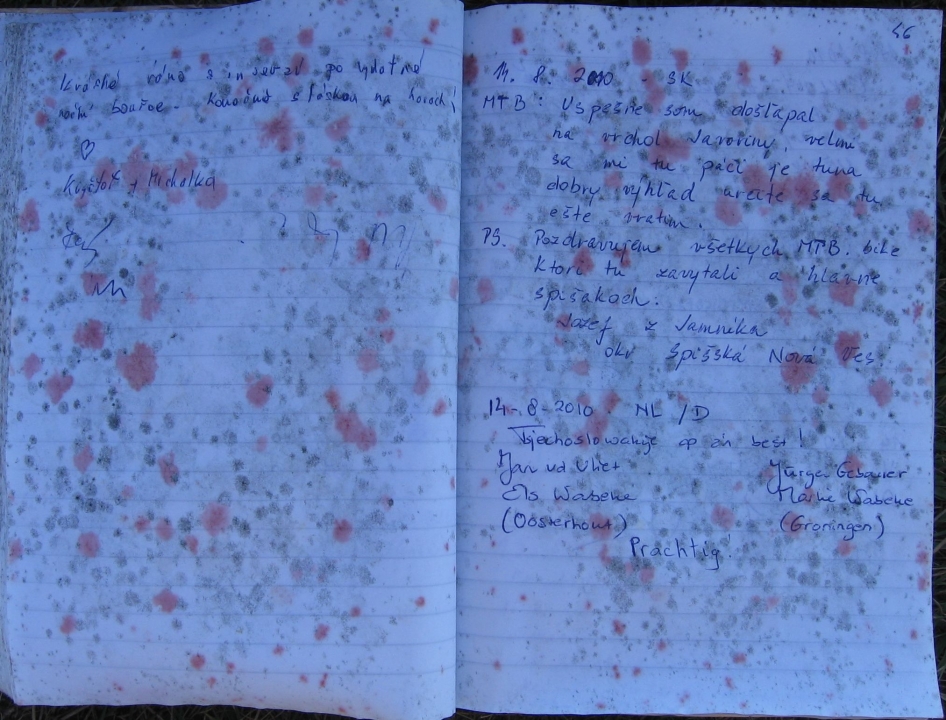 Krásné ráno s inverzí po vydatné
noční bouřce - Konečně s láskou na horách!
♡
Kryštof + Michalka
46
14. 8. 2010 - SK
MTB: Uspešne som došlapal
na vrchol Javoriny, velmi
sa mi tu páči je tuna
dobry výhľad určite sa tu
ešte vratim.
PS. Pozdravujem všetkych MTB. bike
ktorí tu zavytali a hlavne
spišakoch.
Jozef z Jamníka
okr Spišská Nová Ves
14-8-2010 NL /D
Tsjechoslowakije op zn best!
Jan vd Vliet Jürgen Gebauer
Els Wabeke Maine Wabeke
(Oosterhout) (Groningen)
Prachtig!